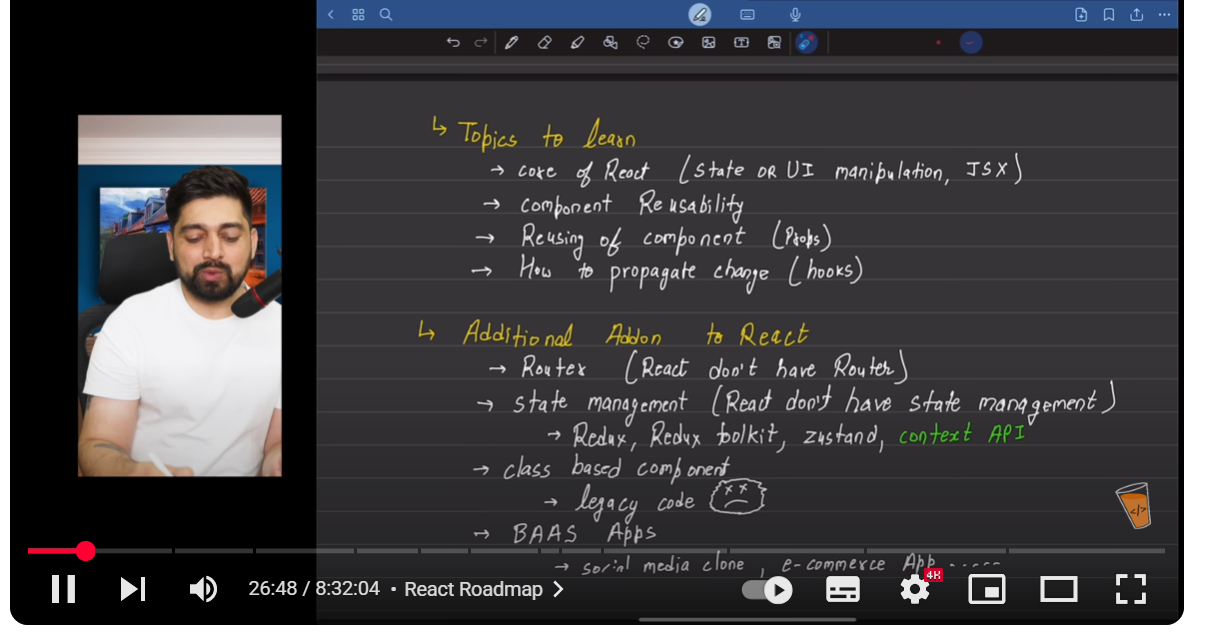 ↳ Topics to learn
→ core of React (state OR UI manipulation, JSX)
→ component Reusability
→ Reusing of component (Props)
→ How to propagate change (hooks)
↳ Additional Addon to React
→ Router (React don't have Router)
→ state management (React don't have state management)
→ Redux, Redux toolkit, zustand, context API
→ class based component
→ legacy code
→ BAAS Apps
→ social media clone, e-commerce App -----
</>
26:48 / 8:32:04 • React Roadmap
4K